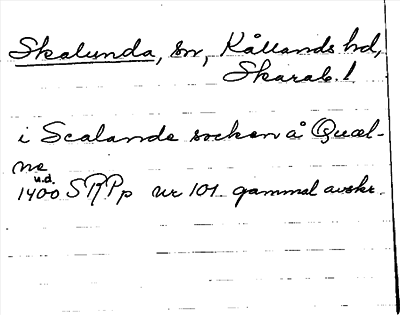 Skalunda, sn, Kållands hd,
Skarab. l
i Scalande socken å Quæl-
ne
u.d.
1400 SRPp nr 101 gammal avskr.